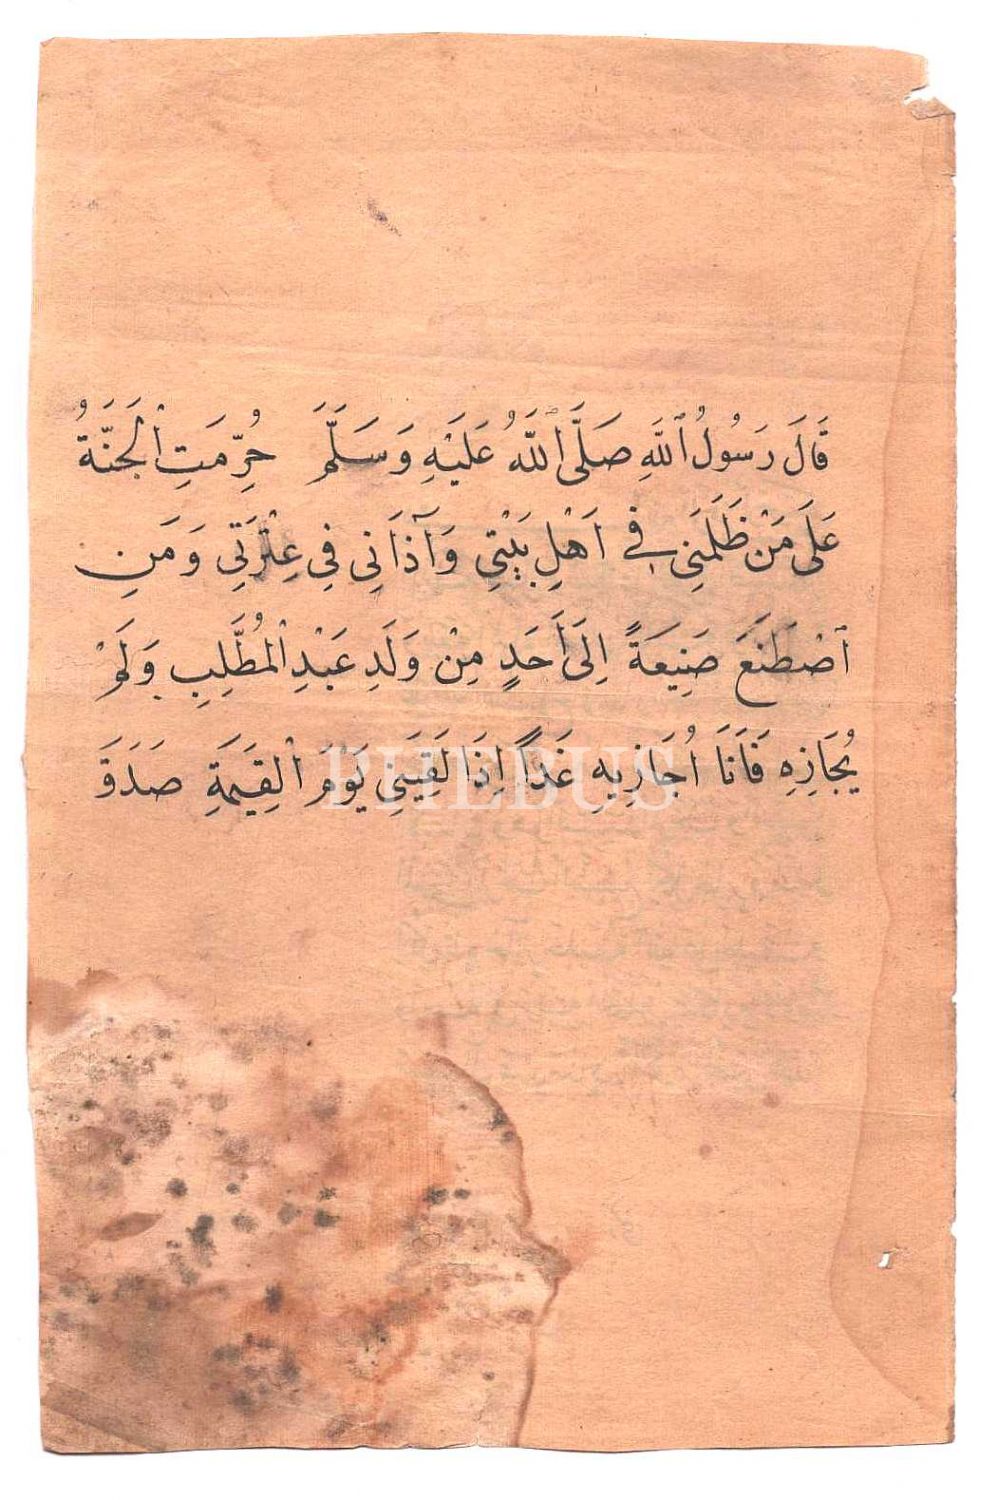 قَالَ رَسُولُ ٱللَّهِ صَلَّى ٱللَّهُ عَلَيْهِ وَسَلَّمَ حُرِّمَتِ الْجَنَّةُ
عَلَى مَنْ ظَلَمَنِي فِي اَهْلِ بَيْتِي وَآذَانِي فِي عِتْرَتِي وَمَنِ
ٱصْطَنَعَ صَنِيعَةً اِلَى أَحَدٍ مِنْ وَلَدِ عَبْدِ الْمُطَّلِبِ وَلَمْ
يُجَازِهِ فَاَنَا اُجَازِيهِ غَدًا اِذَا لَقِيَنِي يَوْمَ الْقِيٰمَةِ صَدَقَ
PHEBUS